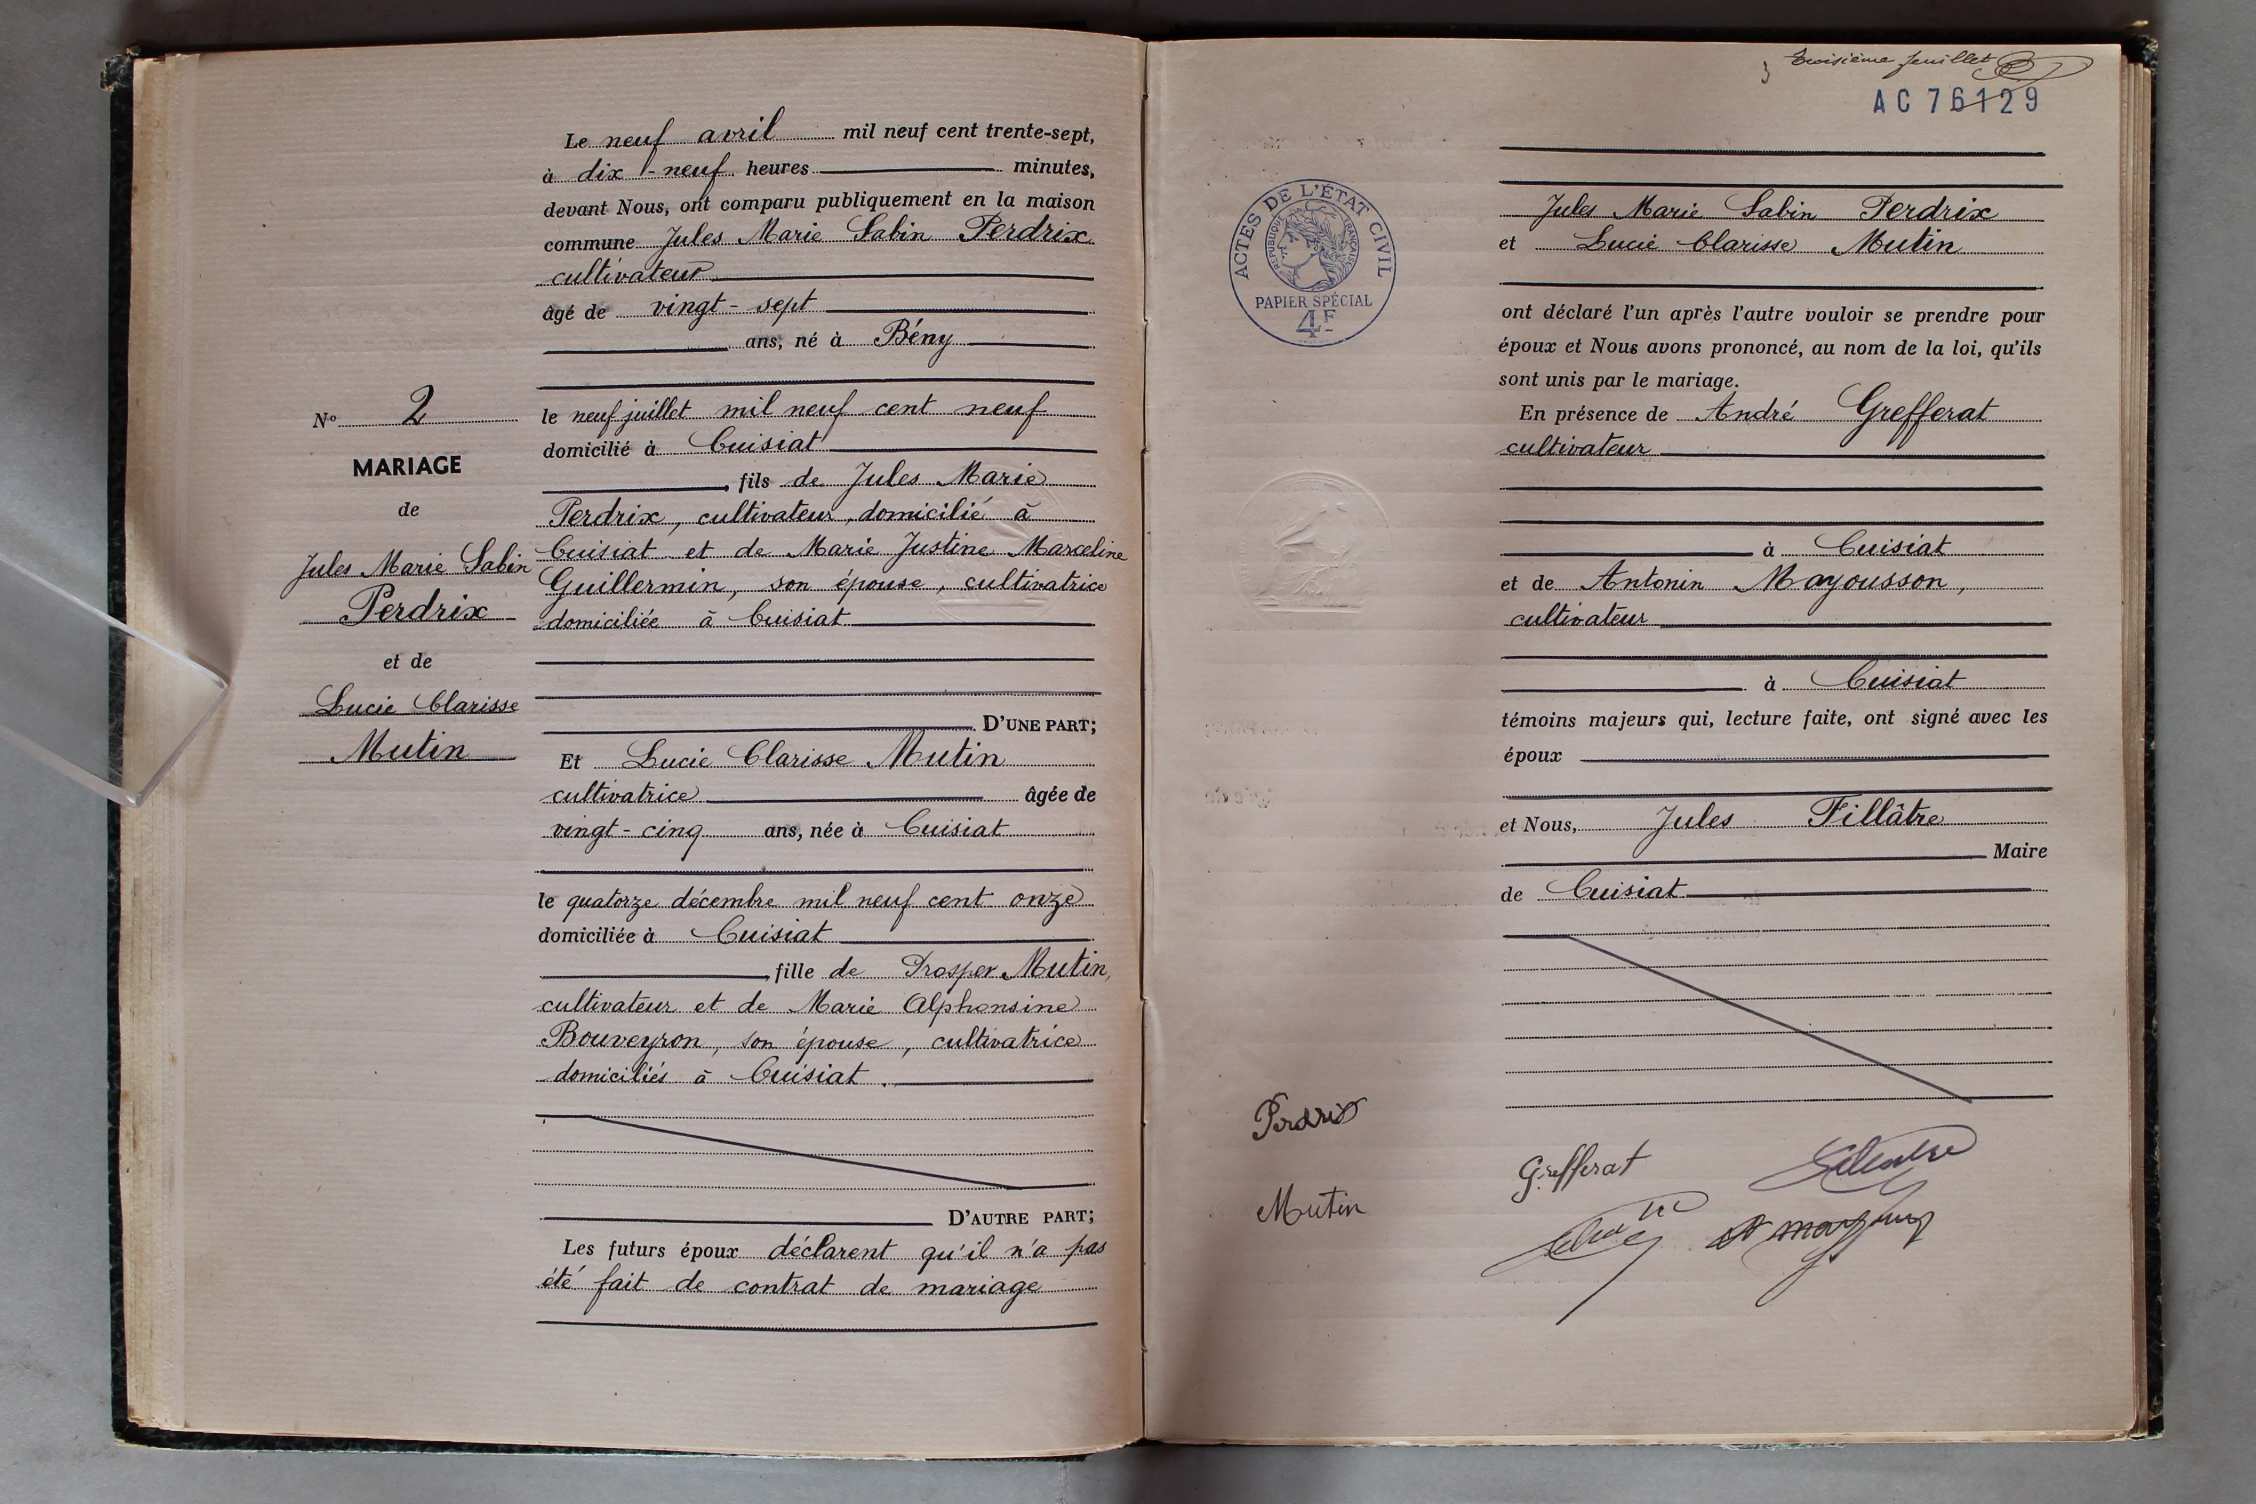 Le neuf avril mil neuf cent trente-sept,
à dix-neuf heures minutes,
devant Nous, ont comparu publiquement en la maison
commune Jules Marie Sabin Perdrix
cultivateur
âgé de vingt-sept
ans, né à Bény
le neuf juillet mil neuf cent neuf
domicilié à Cuisiat
fils de Jules Marie
Perdrix, cultivateur, domicilié à
Cuisiat et de Marie Justine Marceline
Guillermin, son épouse, cultivatrice
domiciliée à Cuisiat
D'UNE PART;
Et Lucie Clarisse Mutin
cultivatrice âgée de
vingt-cinq ans, née à Cuisiat
le quatorze décembre mil neuf cent onze
domiciliée à Cuisiat
fille de Prosper Mutin,
cultivateur et de Marie Alphonsine
Bouveyron, son épouse, cultivatrice
domiciliés à Cuisiat.
D'AUTRE PART;
Les futurs époux déclarent qu'il n'a pas
été fait de contrat de mariage
No 2
MARIAGE
de
Jules Marie Sabin
Perdrix
et de
Lucie Clarisse
Mutin
3 troisième feuillet
AC 76129
ACTES DE L'ÉTAT CIVIL
RÉPUBLIQUE FRANÇAISE
PAPIER SPÉCIAL
4F
Jules Marie Sabin Perdrix
et Lucie Clarisse Mutin
ont déclaré l'un après l'autre vouloir se prendre pour
époux et Nous avons prononcé, au nom de la loi, qu'ils
sont unis par le mariage.
En présence de André Grefferat
cultivateur
à Cuisiat
et de Antonin Mayousson,
cultivateur
à Cuisiat
témoins majeurs qui, lecture faite, ont signé avec les
époux
et Nous, Jules Fillâtre
Maire
de Cuisiat
Perdrix
Grefferat
Mutin